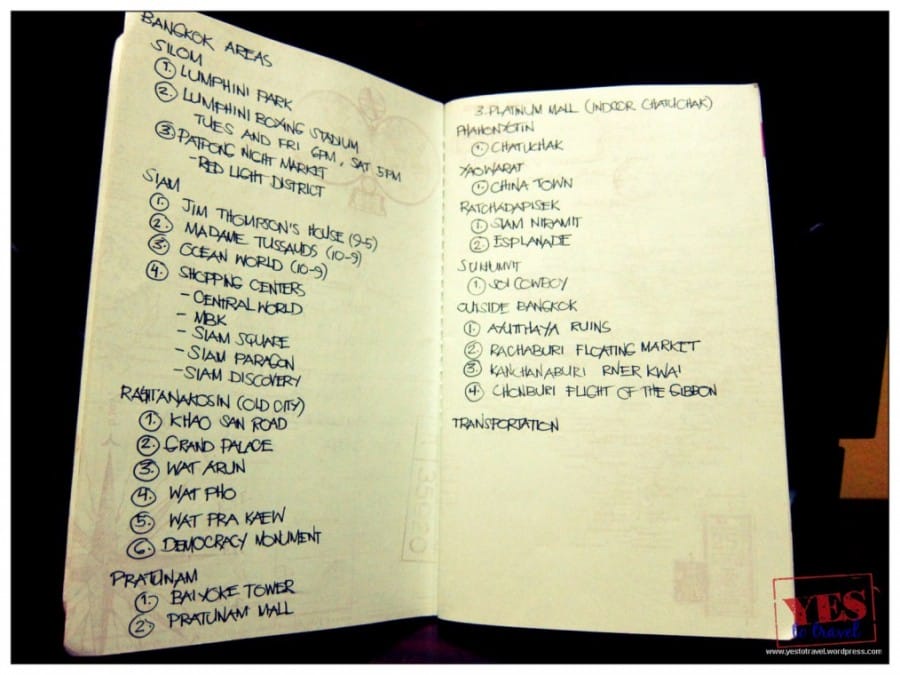 BANGKOK AREAS
SILOM
1. LUMPHINI PARK
2. LUMPHINI BOXING STADIUM
TUES AND FRI 6PM, SAT 5PM
3. PATPONG NIGHT MARKET
- RED LIGHT DISTRICT
SIAM
1. JIM THOMPSON'S HOUSE (9-5)
2. MADAME TUSSAUDS (10-9)
3. OCEAN WORLD (10-9)
4. SHOPPING CENTERS
- CENTRAL WORLD
- MBK
- SIAM SQUARE
- SIAM PARAGON
- SIAM DISCOVERY
RATTANAKOSIN (OLD CITY)
1. KHAO SAN ROAD
2. GRAND PALACE
3. WAT ARUN
4. WAT PHO
5. WAT PRA KAEW
6. DEMOCRACY MONUMENT
PRATUNAM
1. BAIYOKE TOWER
2. PRATUNAM MALL
3. PLATINUM MALL (INDOOR CHATUCHAK)
PHAHONYOTIN
1. CHATUCHAK
YAOWARAT
1. CHINA TOWN
RATCHADAPISEK
1. SIAM NIRAMIT
2. ESPLANADE
SUKUMVIT
1. SOI COWBOY
OUTSIDE BANGKOK
1. AYUTTHAYA RUINS
2. RACHABURI FLOATING MARKET
3. KANCHANABURI RIVER KWAI
4. CHONBURI FLIGHT OF THE GIBBON
TRANSPORTATION
35020
YES
to travel
www.yestotravel.wordpress.com